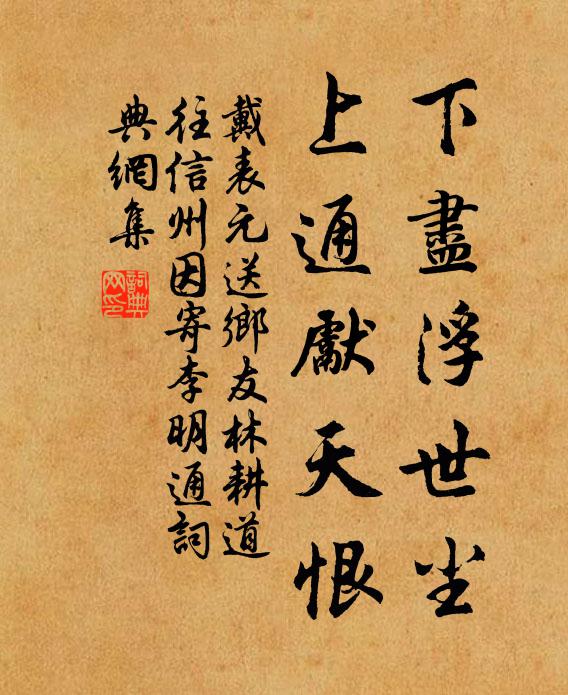 下盡浮世坐
上通獻天恨
戴表元送鄉友林耕道
往信州因寄李明通詞
典網集
詞典
网印